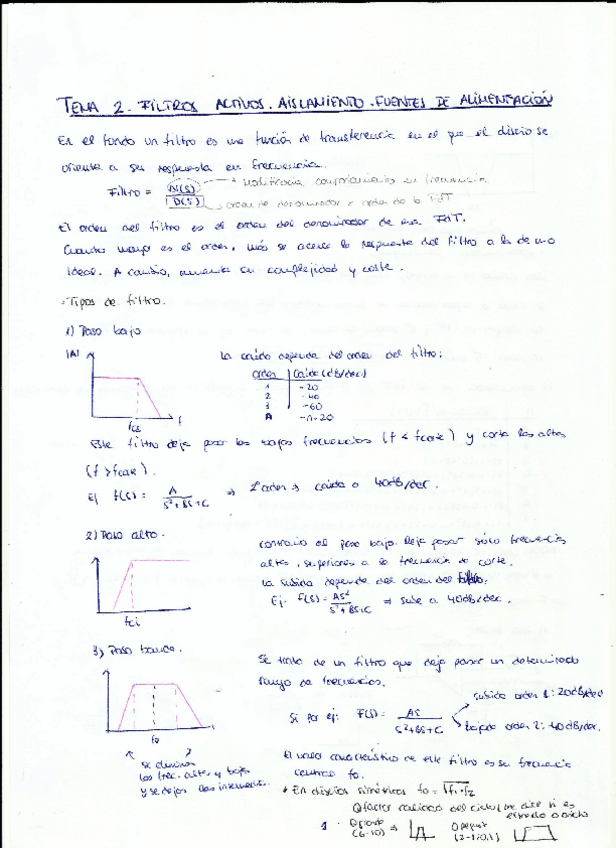 TEMA 2. FILTROS ACTIVOS. AISLAMIENTO. FUENTES DE ALIMENTACIÓN
En el fondo un filtro es una función de transferencia en el que el diseño se
orienta a su respuesta en frecuencia.
Filtro = N(S) / D(S)
→ comportamiento en frecuencia
→ orden de denominador = orden de la FdT
El orden del filtro es el orden del denominador de esa FdT.
Cuanto mayor es el orden, más se acerca la respuesta del filtro a la de uno
ideal. A cambio, aumenta su complejidad y coste.
- Tipos de filtro.
1) Paso bajo
|A|
f
La caída depende del orden del filtro:
orden | Caída (dB/dec)
1 | -20
2 | -40
3 | -60
-n·20
Este filtro deja pasar las bajas frecuencias (f < fcorte) y corta las altas
(f > fcorte).
Ej f(S) = A / S²+BS+C ⇒ 2º orden → caída a 40dB/dec.
2) Paso alto.
fci
contrario al paso bajo. Deja pasar sólo frecuencias
altas, superiores a la frecuencia de corte.
La subida depende del orden del filtro.
Ej. F(S) = AS² / S²+BS+C ⇒ sube a 40dB/dec.
3) Paso banda.
f0
Se trata de un filtro que deja pasar un determinado
rango de frecuencias.
Si por ej: F(S) = AS / S²+BS+C
subida orden 1: 20dB/dec
bajada orden 2: 40dB/dec.
se eliminan
las frec. altas y bajas
y se dejan las intermedias.
El valor característico de este filtro es su frecuencia
central f0.
* En diseños simétricos f0 = √f1·f2
Q factor calidad del
estrecho o ancho
1
Q grande
(6-10) ⇒